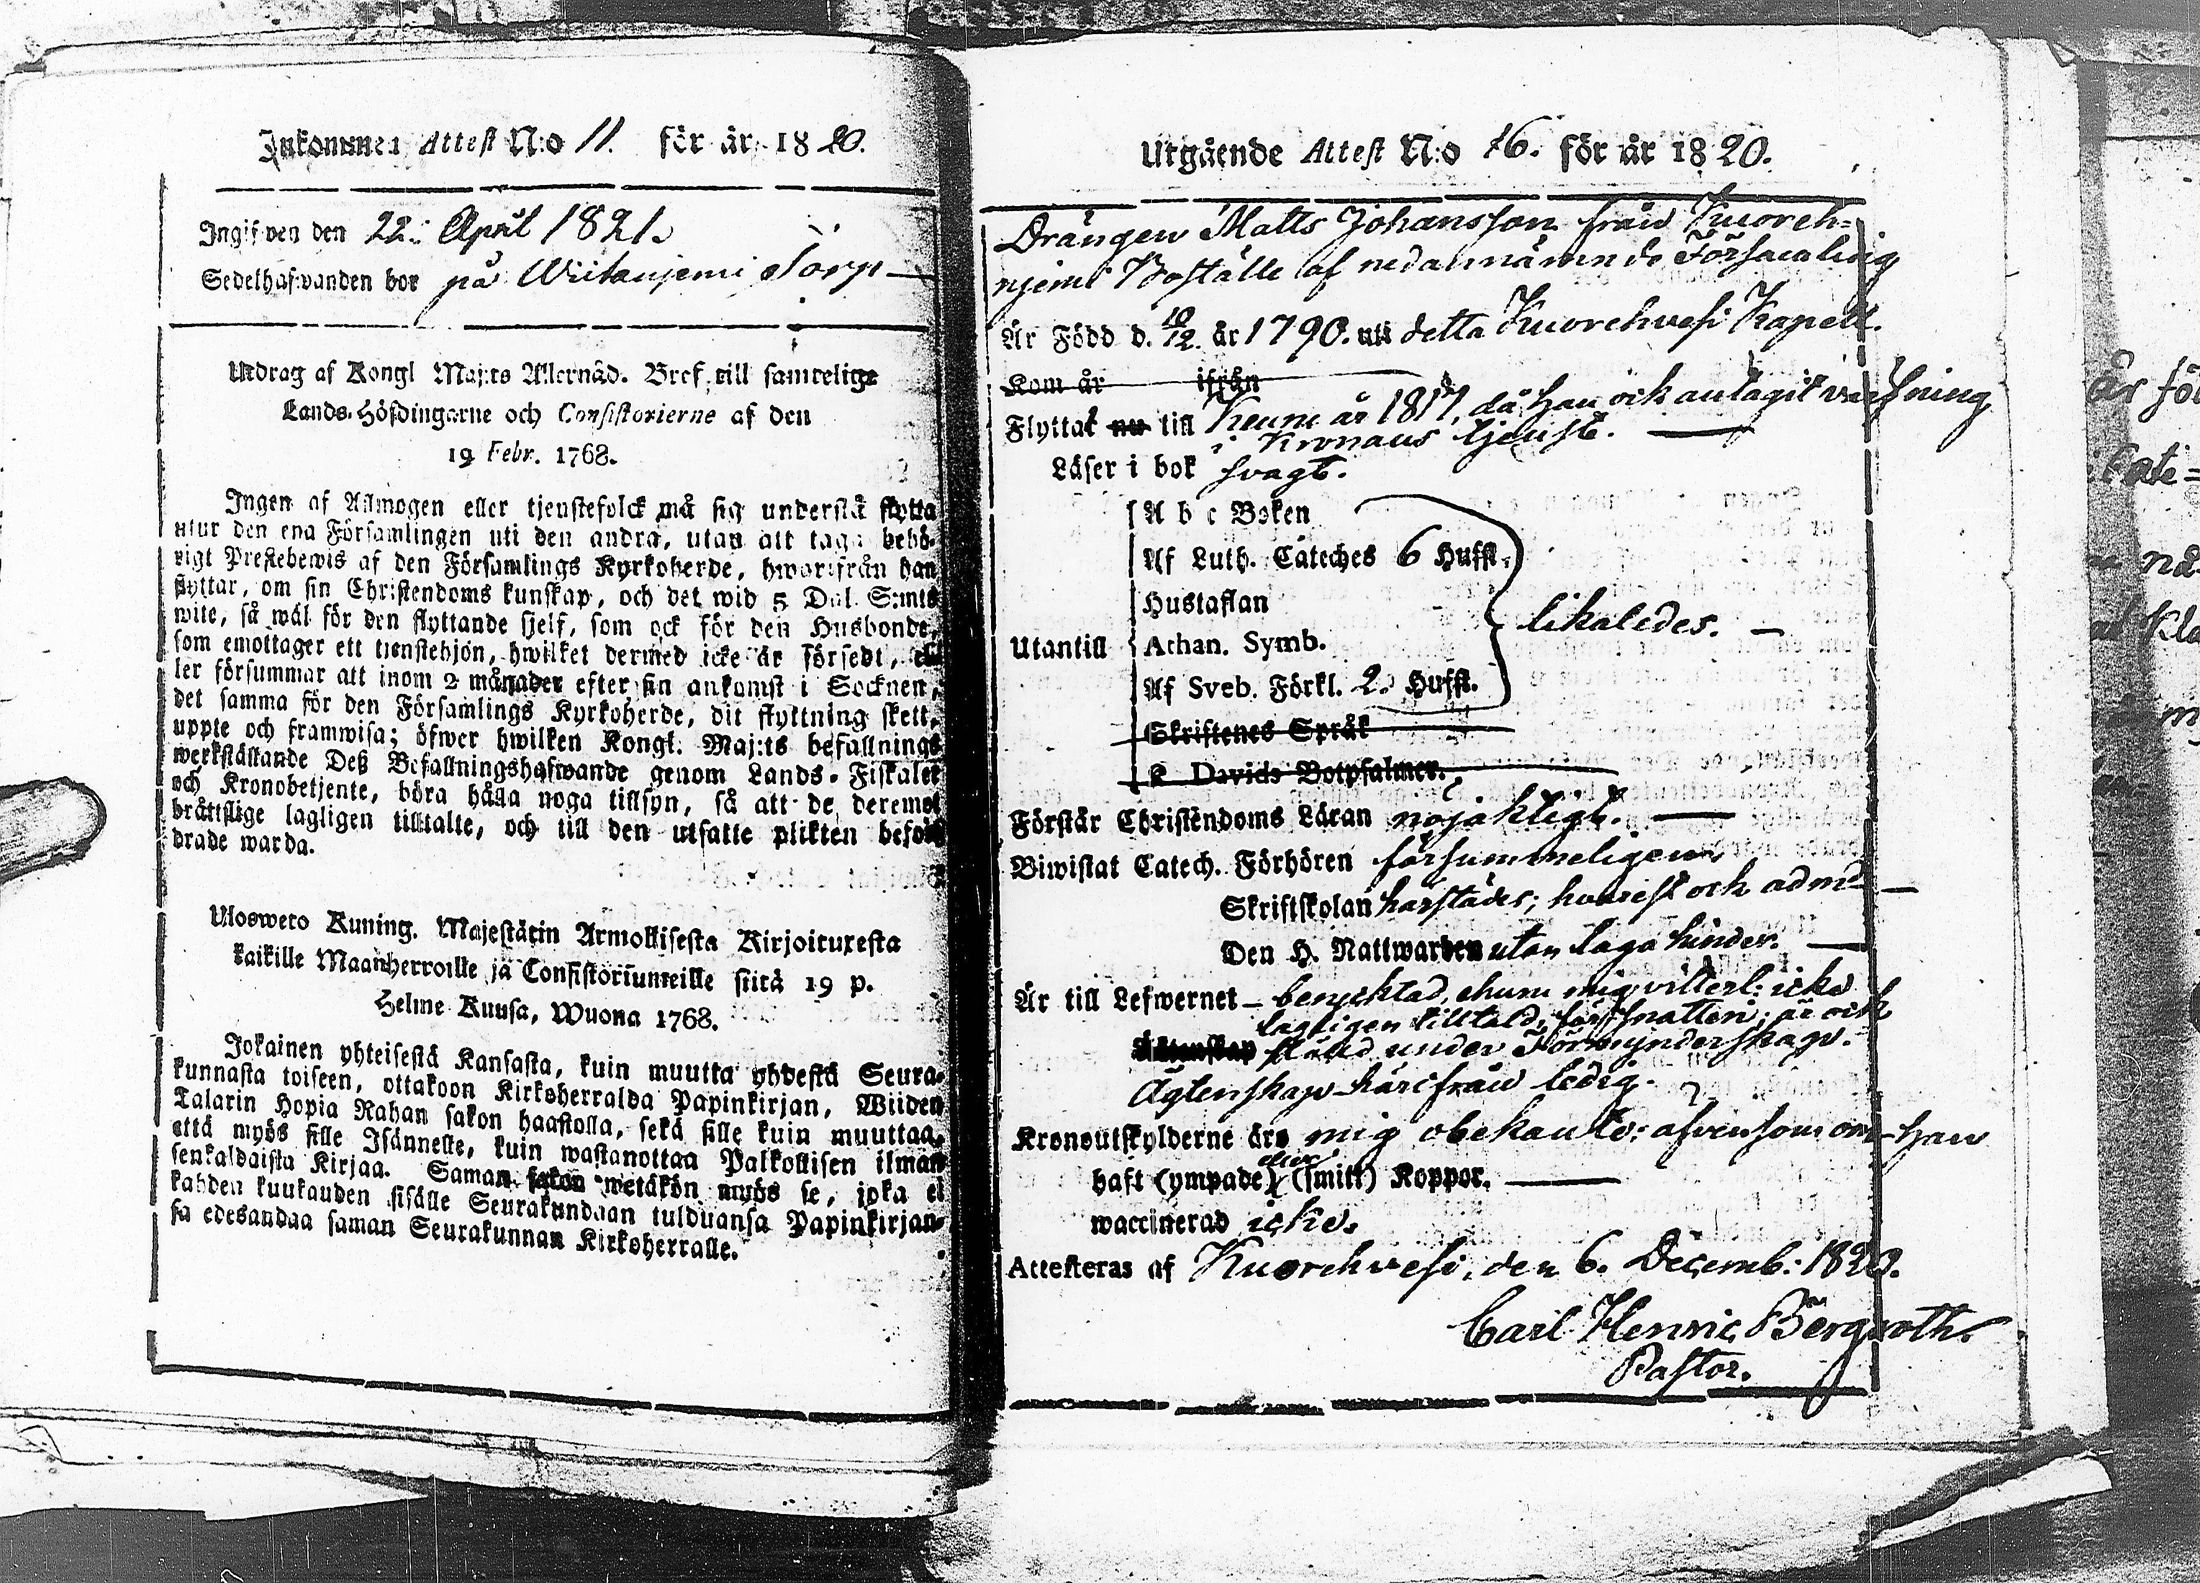 Inkommen Attest N:o 11. för år 1820.
Ingifwen den 22: April 1821.
Sedelhafwanden bor på Wiitaniemi Torp
Utdrag af Kongl Maj:ts Allernåd. Bref till samtelige
Lands-Höfdingarne och Consistorierne af den
19 Febr. 1768.
Ingen af Allmogen eller tjenstefolck må sig understå flytta
utur den ena Församlingen uti den andra, utan att taga behö-
rigt Prestebewis af den Församlings Kyrkoherde, hwarifrån han
flyttar, om sin Christendoms kunskap, och det wid 5 Dal. S:mts
wite, så wäl för den flyttande sjelf, som ock för den Husbonde,
som emottager ett tjenstehjon, hwilket dermed icke är försedt, el-
ler försummar att inom 2 månader efter sin ankomst i Socknen,
det samma för den Församlings Kyrkoherde, dit flyttning skett,
uppte och framwisa; öfwer hwilken Kongl. Maj:ts befallnings
werkställande Deß Befallningshafwande genom Lands-Fiskaler
och Kronobetjente, böra hålla noga tillsyn, så att de deremot
bråttslige lagligen tilltalte, och till den utsatte plikten befor-
drade warda.
Ulosweto Kuning. Majestätin Armollisesta Kirjoituxesta
kaikille Maanherroille ja Consistoriumeille siitä 19 p.
Helme Kuusa, Wuona 1768.
Jokainen yhteisestä Kansasta, kuin muutta yhdestä Seura-
kunnasta toiseen, ottakoon Kirkoherralda Papinkirjan, Wiiden
Talarin Hopia Rahan sakon haastolla, sekä sille kuin muuttaa,
että myös sille Isännelle, kuin wastanottaa Palkollisen ilman
senkaldaista Kirjaa. Saman sakon wetäkön myös se, joka ei
kahden kuukauden sisälle Seurakundaan tulduansa Papinkirjan-
sa edesandaa saman Seurakunnan Kirkoherralle.
Utgående Attest N:o 16. för år 1820.
Drängen Matts Johansson från Kuoreh-
njemi Boställe af nedannämnde Församling
Är Född d. 10/12. år 1790. uti detta Kuorehvesi Kapell.
Kom år ifrån
Flyttat nu till Keuru år 1817, då han och antagit värfning
i Kronans tjenst.
Läser i bok svagt.
A b c Boken
Af Luth. Cateches 6 Hufst.
Hustaflan
Utantill Athan. Symb. likaledes.
Af Sveb. Förkl. 2. Hufst.
Skriftenes Språk
Davids Botpsalmer.
Förstår Christendoms Läran nöjaktligt.
Biwistat Catech. Förhören försummeligen
Skriftskolan härstädes; hvarest och adm:
Den H. Nattwarden utan laga hinder.
Är till Lefwernet beryktad, ehuru mig vitterl: icke
lagligen tilltald, för snatteri; är och
ställd under Förmynderskap.
Ägtenskap härifrån ledig.
Kronoutskylderne äro mig obekante; äfvensom om han
haft (ympade) eller (smitt) Koppor.
waccinerad icke.
Attesteras af Kuorehvesi, den 6. Decemb: 1820.
Carl Henric Bergroth
Pastor.